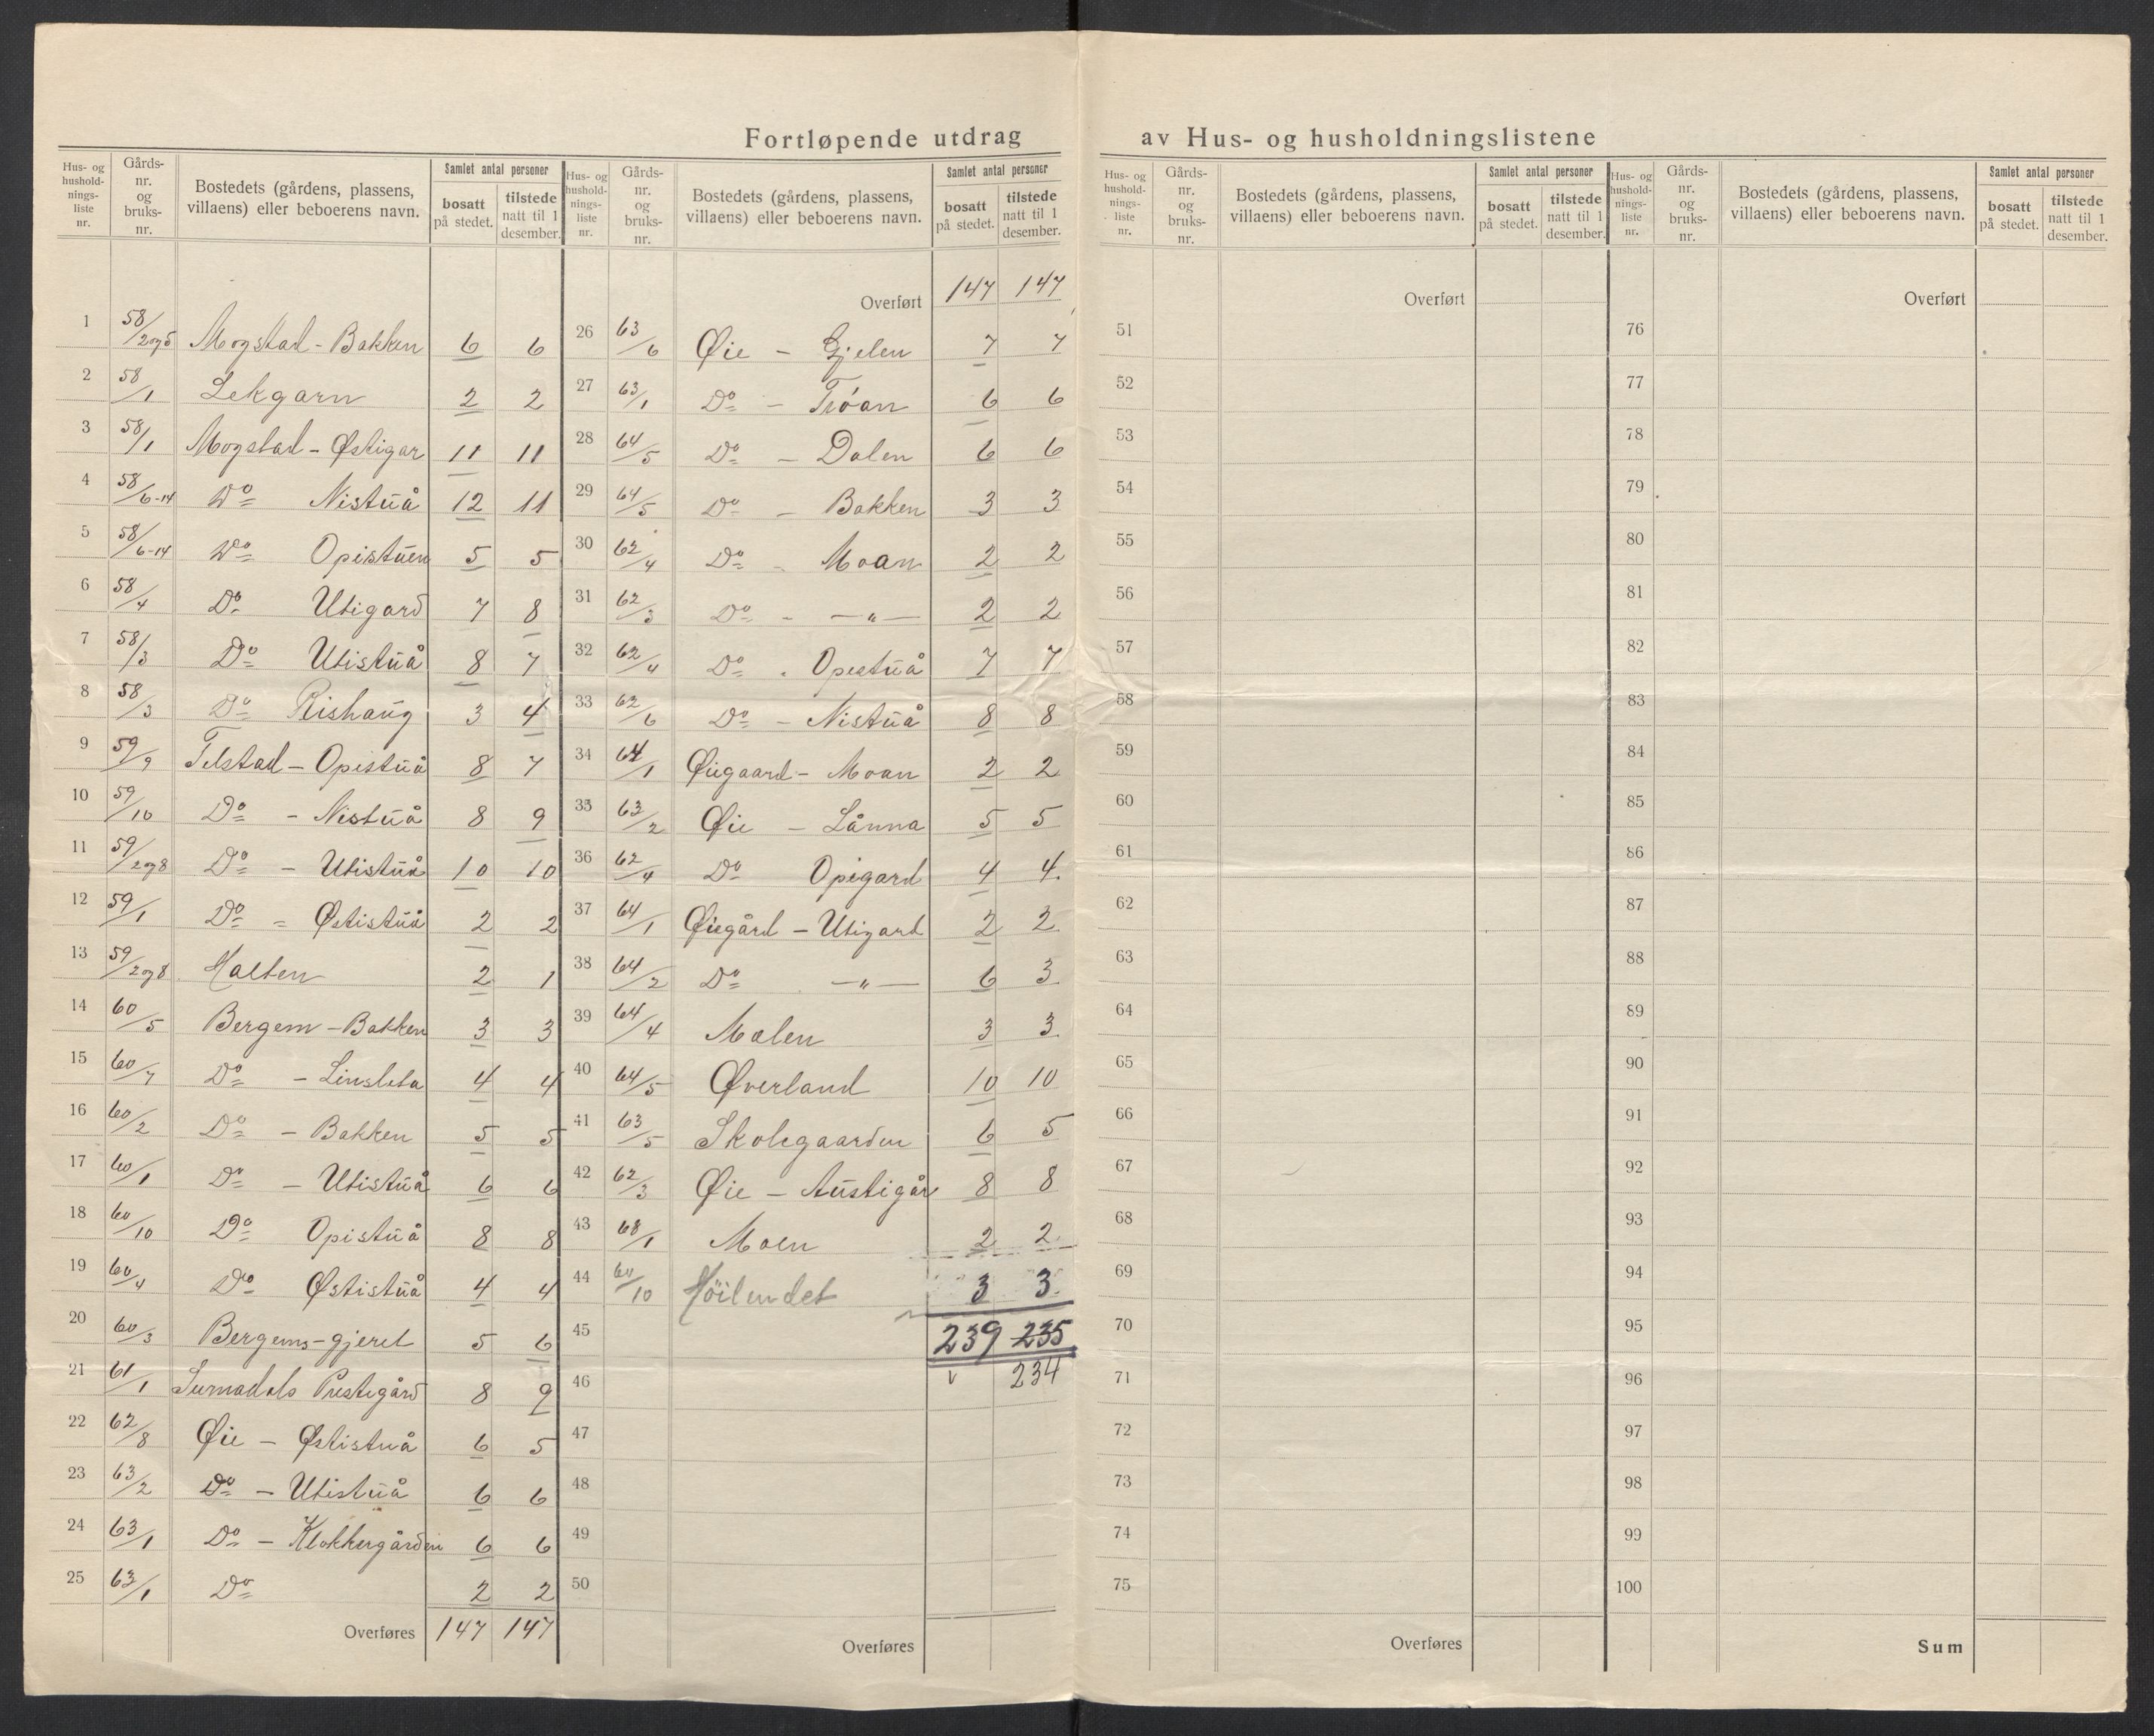 Fortløpende utdrag av Hus- og husholdningslistene
Hus- og husholdnings-liste nr. | Gårds-nr. og bruks-nr. | Bostedets (gårdens, plassens, villaens) eller beboerens navn. | Samlet antal personer | bosatt på stedet. | tilstede natt til 1 desember.
1 58/2og5 Mogstad - Bakken 6 6
2 58/1 Lekgarn 2 2
3 58/1 Mogstad - Østigar 11 11
4 58/6-14 Do Nistuå 12 11
5 58/6-14 Do Opistuen 5 5
6 58/4 Do Utigard 7 8
7 58/3 Do Utistuå 8 7
8 58/3 Do Rishaug 3 4
9 59/9 Telstad - Opistuå 8 7
10 59/10 Do - Nistuå 8 9
11 59/2og8 Do - Utistuå 10 10
12 59/1 Do - Østistuå 2 2
13 59/2og8 Halten 2 1
14 60/5 Bergem - Bakken 3 3
15 60/7 Do - Linsleta 4 4
16 60/2 Do - Bakken 5 5
17 60/1 Do - Utistuå 6 6
18 60/10 Do Opistuå 8 8
19 60/4 Do Østistuå 4 4
20 60/3 Bergems-gjeret 5 6
21 61/1 Surnadals Prestegård 8 9
22 62/8 Øie - Østistuå 6 5
23 63/2 Do - Utistuå 6 6
24 63/1 Do - Klokkergården 6 6
25 63/1 Do 2 2
Overføres 147 147
Hus- og husholdnings-liste nr. | Gårds-nr. og bruks-nr. | Bostedets (gårdens, plassens, villaens) eller beboerens navn. | Samlet antal personer | bosatt på stedet. | tilstede natt til 1 desember.
Overført 147 147
26 63/6 Øie - Gjelen 7 7
27 63/1 Do - Trøan 6 6
28 64/5 Do - Dalen 6 6
29 64/5 Do - Bakken 3 3
30 62/4 Do - Moan 2 2
31 62/3 Do - —"— 2 2
32 62/4 Do - Opestuå 7 7
33 62/6 Do - Nistuå 8 8
34 64/1 Øiegaard - Moan 2 2
35 63/2 Øie - Lånna 5 5
36 62/4 Do Opigard 4 4.
37 64/1 Øiegård - Utigard 2 2
38 64/2 Do —"— 6 3
39 64/4 Malen 3 3
40 64/5 Øverland 10 10
41 63/5 Skolegaarden 6 5
42 62/3 Øie - Austigår 8 8
43 68/1 Moen 2 2
44 60/10 Höilendet 3 3.
45 239 235
46 v 234
47
48
49
50
Overføres
Hus- og husholdnings-liste nr. | Gårds-nr. og bruks-nr. | Bostedets (gårdens, plassens, villaens) eller beboerens navn. | Samlet antal personer | bosatt på stedet. | tilstede natt til 1 desember.
Overført
51
52
53
54
55
56
57
58
59
60
61
62
63
64
65
66
67
68
69
70
71
72
73
74
75
Overføres
Hus- og husholdnings-liste nr. | Gårds-nr. og bruks-nr. | Bostedets (gårdens, plassens, villaens) eller beboerens navn. | Samlet antal personer | bosatt på stedet. | tilstede natt til 1 desember.
Overført
76
77
78
79
80
81
82
83
84
85
86
87
88
89
90
91
92
93
94
95
96
97
98
99
100
Sum